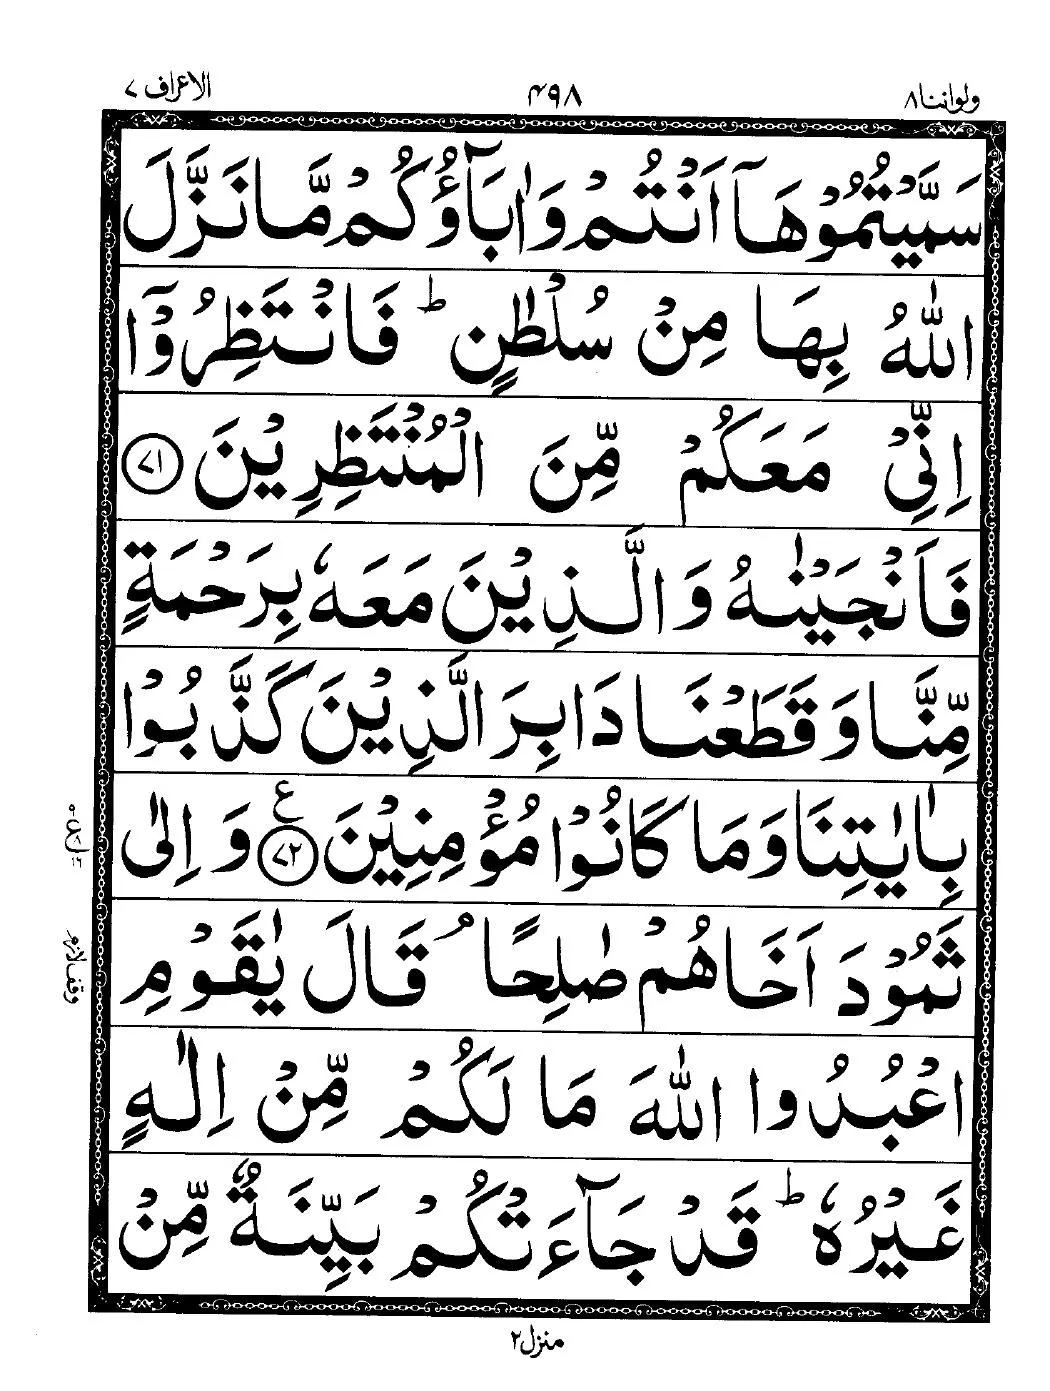 ولواننا۸ ۴۹۸ الاعراف ۷
سَمَّيْتُمُوْهَاۤ اَنْتُمْ وَاٰبَآؤُكُمْ مَّا نَزَّلَ
اللّٰهُ بِهَا مِنْ سُلْطٰنٍ ؕ فَانْتَظِرُوْۤا
اِنِّيْ مَعَكُمْ مِّنَ الْمُنْتَظِرِيْنَ ۷۱
فَاَنْجَيْنٰهُ وَالَّذِيْنَ مَعَهٗ بِرَحْمَةٍ
مِّنَّا وَقَطَعْنَا دَابِرَ الَّذِيْنَ كَذَّبُوْا
بِاٰيٰتِنَا وَمَا كَانُوْا مُؤْمِنِيْنَ ۷۲ ع وَاِلٰى
ثَمُوْدَ اَخَاهُمْ صٰلِحًا ۘ قَالَ يٰقَوْمِ
وقف لازم
اعْبُدُوا اللّٰهَ مَا لَكُمْ مِّنْ اِلٰهٍ
غَيْرُهٗ ؕ قَدْ جَآءَتْكُمْ بَيِّنَةٌ مِّنْ
منزل۲